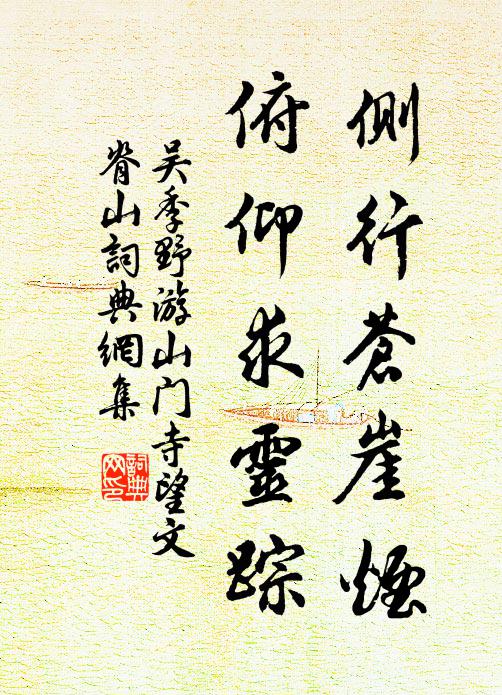 側行蒼崖煙
俯仰求靈踪
吴季野游山门寺望文
脊山詞典網集
詞典網印